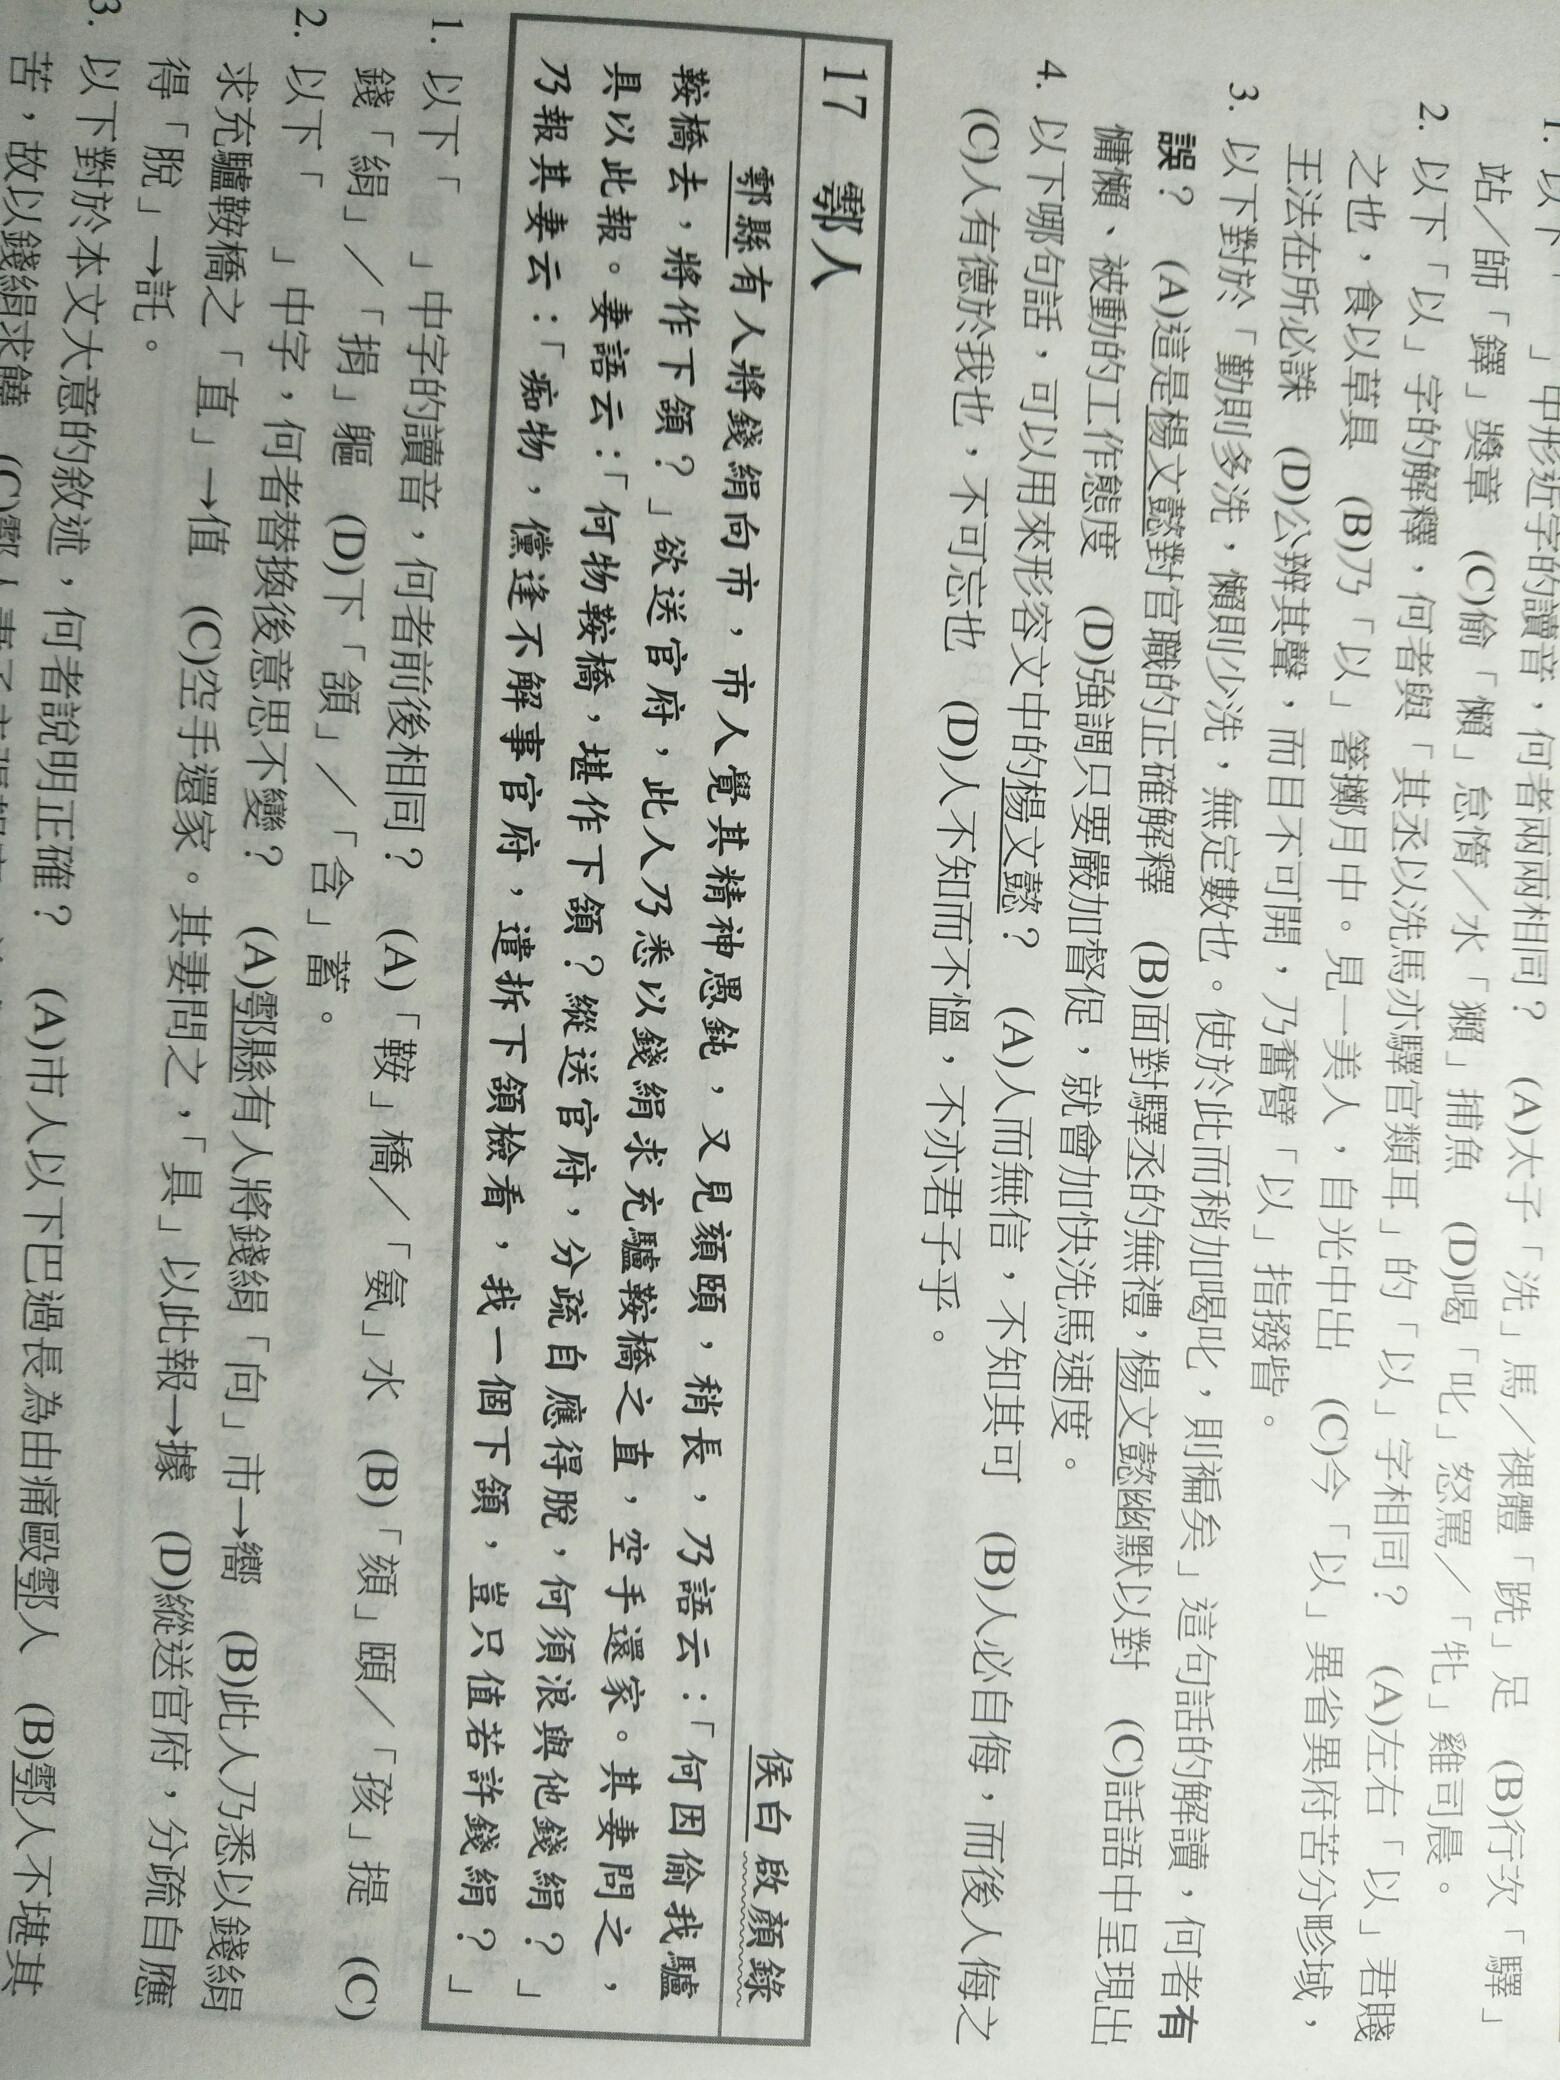 1. 以下「　」中形近字的讀音，何者兩兩相同？ (A)太子「洗」馬／裸體「跣」足 (B)行次「驛」
站／師「鐸」獎章 (C)偷「懶」怠惰／水「獺」捕魚 (D)喝「叱」怒罵／「牝」雞司晨。
2. 以下「以」字的解釋，何者與「其丞以洗馬亦驛官類耳」的「以」字相同？ (A)左右「以」君賤
之也，食以草具 (B)乃「以」箸擲月中。見一美人，自光中出 (C)今「以」異省異府苦分畛域，
王法在所必誅 (D)公辨其聲，而目不可開，乃奮臂「以」指撥眥。
3. 以下對於「勤則多洗，懶則少洗，無定數也。使於此而稍加喝叱，則褊矣」這句話的解讀，何者有
誤？ (A)這是楊文懿對官職的正確解釋 (B)面對驛丞的無禮，楊文懿幽默以對 (C)話語中呈現出
慵懶、被動的工作態度 (D)強調只要嚴加督促，就會加快洗馬速度。
4. 以下哪句話，可以用來形容文中的楊文懿？ (A)人而無信，不知其可 (B)人必自侮，而後人侮之
(C)人有德於我也，不可忘也 (D)人不知而不慍，不亦君子乎。
17 鄠人
侯白 啟顏錄
鄠縣有人將錢絹向市，市人覺其精神愚鈍，又見頦頤，稍長，乃語云：「何因偷我驢
鞍橋去，將作下頷？」欲送官府，此人乃悉以錢絹求充驢鞍橋之直，空手還家。其妻問之，
具以此報。妻語云：「何物鞍橋，堪作下頷？縱送官府，分疏自應得脫，何須浪與他錢絹？」
乃報其妻云：「痴物，儻逢不解事官府，遣拆下頷檢看，我一個下頷，豈只值若許錢絹？」
1. 以下「　」中字的讀音，何者前後相同？ (A)「鞍」橋／「氨」水 (B)「頦」頤／「孩」提 (C)
錢「絹」／「捐」軀 (D)下「頷」／「含」蓄。
2. 以下「　」中字，何者替換後意思不變？ (A)鄠縣有人將錢絹「向」市→嚮 (B)此人乃悉以錢絹
求充驢鞍橋之「直」→值 (C)空手還家。其妻問之，「具」以此報→據 (D)縱送官府，分疏自應
得「脫」→託。
3. 以下對於本文大意的敘述，何者說明正確？ (A)市人以下巴過長為由痛毆鄠人 (B)鄠人不堪其
苦，故以錢絹求饒 (C)鄠人妻子